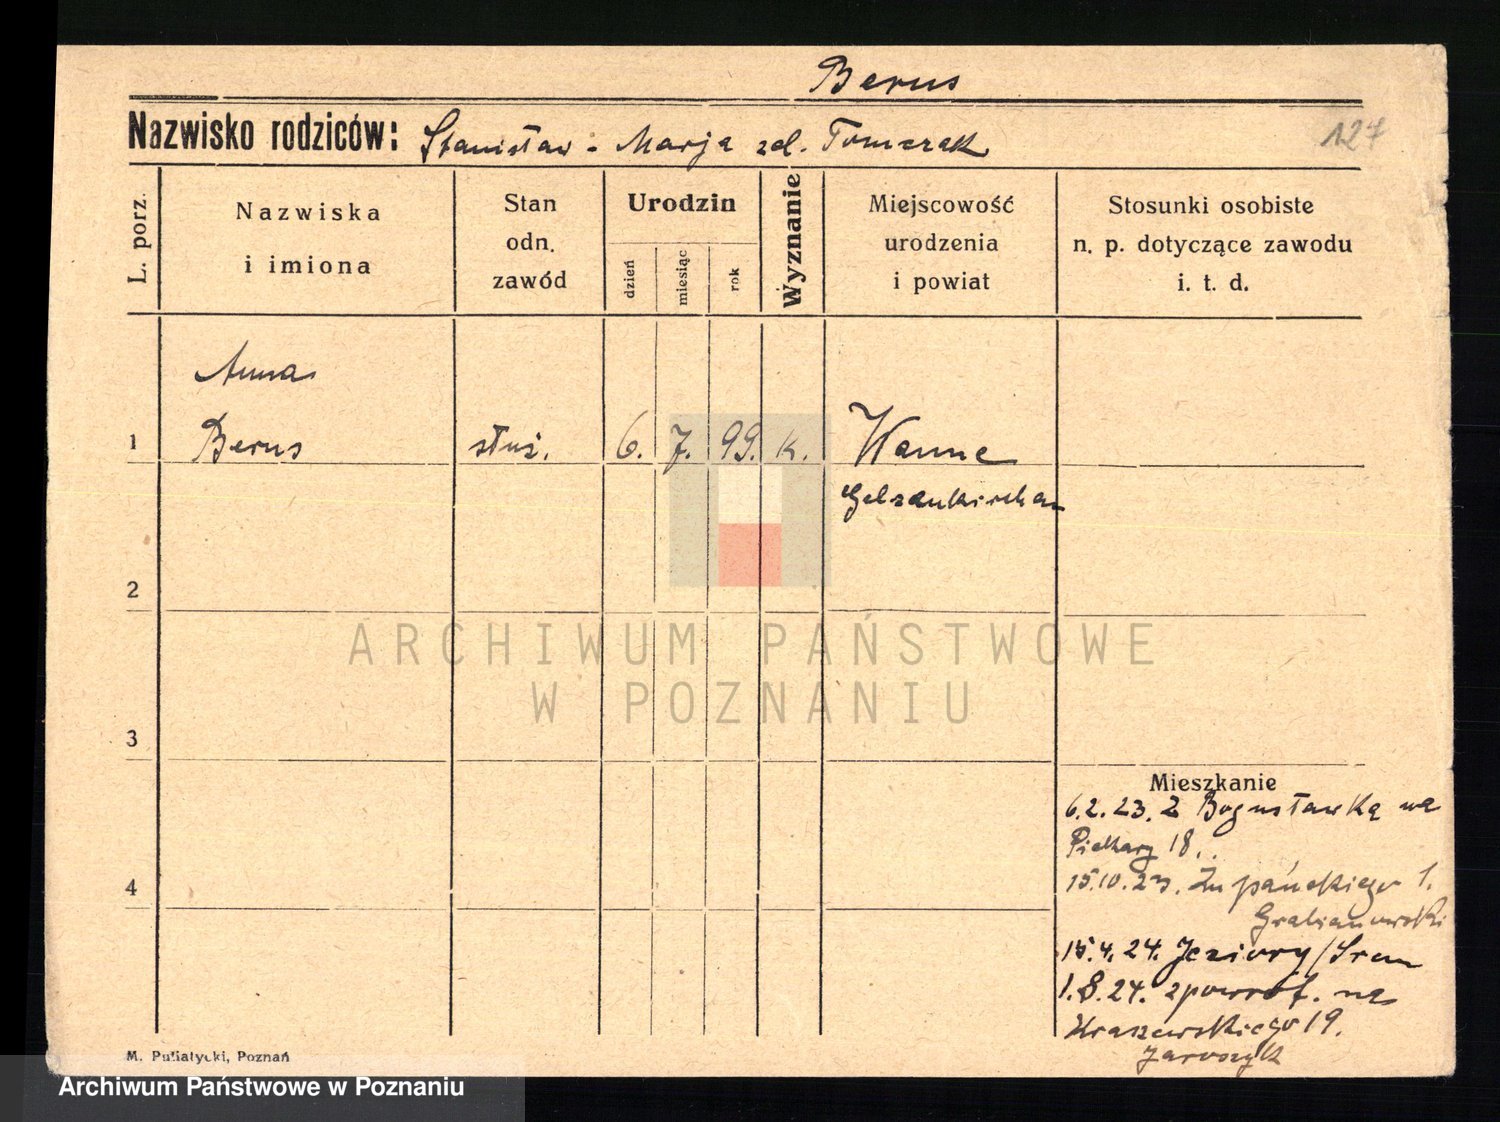 Berus
Nazwisko rodziców: Stanisław - Marja zd. Tomczak
127
L. porz.
Nazwiska
i imiona
Stan
odn.
zawód
Urodzin
dzień
miesiąc
rok
Wyznanie
Miejscowość
urodzenia
i powiat
Stosunki osobiste
n. p. dotyczące zawodu
i. t. d.
Anna
1 Berus służ. 6. 7. 99. k. Wanne
Gelsenkirchen
2
ARCHIWUM PAŃSTWOWE
W POZNANIU
3
Mieszkanie
6.2.23. z Bogusławką na
Piekary 18.
4
15.10.23. Żupańskiego 1.
Grabianowski
15.4.24. Jeziory/Śrem
1.8.24. zpowrot. na
Kraszewskiego 19.
Jaroszyk
M. Putiatycki, Poznań
Archiwum Państwowe w Poznaniu